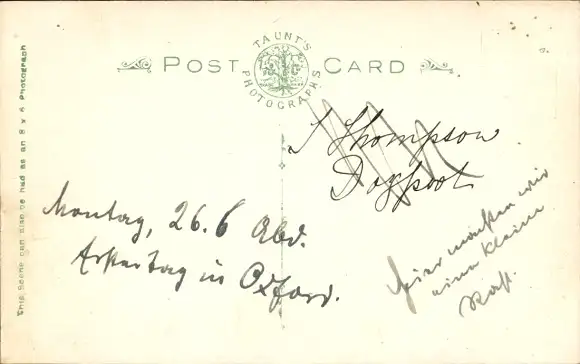 TAUNT'S
PHOTOGRAPHS
POST CARD
This Scene can also be had as an 8 x 6 Photograph
J Thompson
Dogpool
Montag, 26.6 Abd.
Erster Tag in Oxford.
Hier machten wir
eine kleine
Rast.